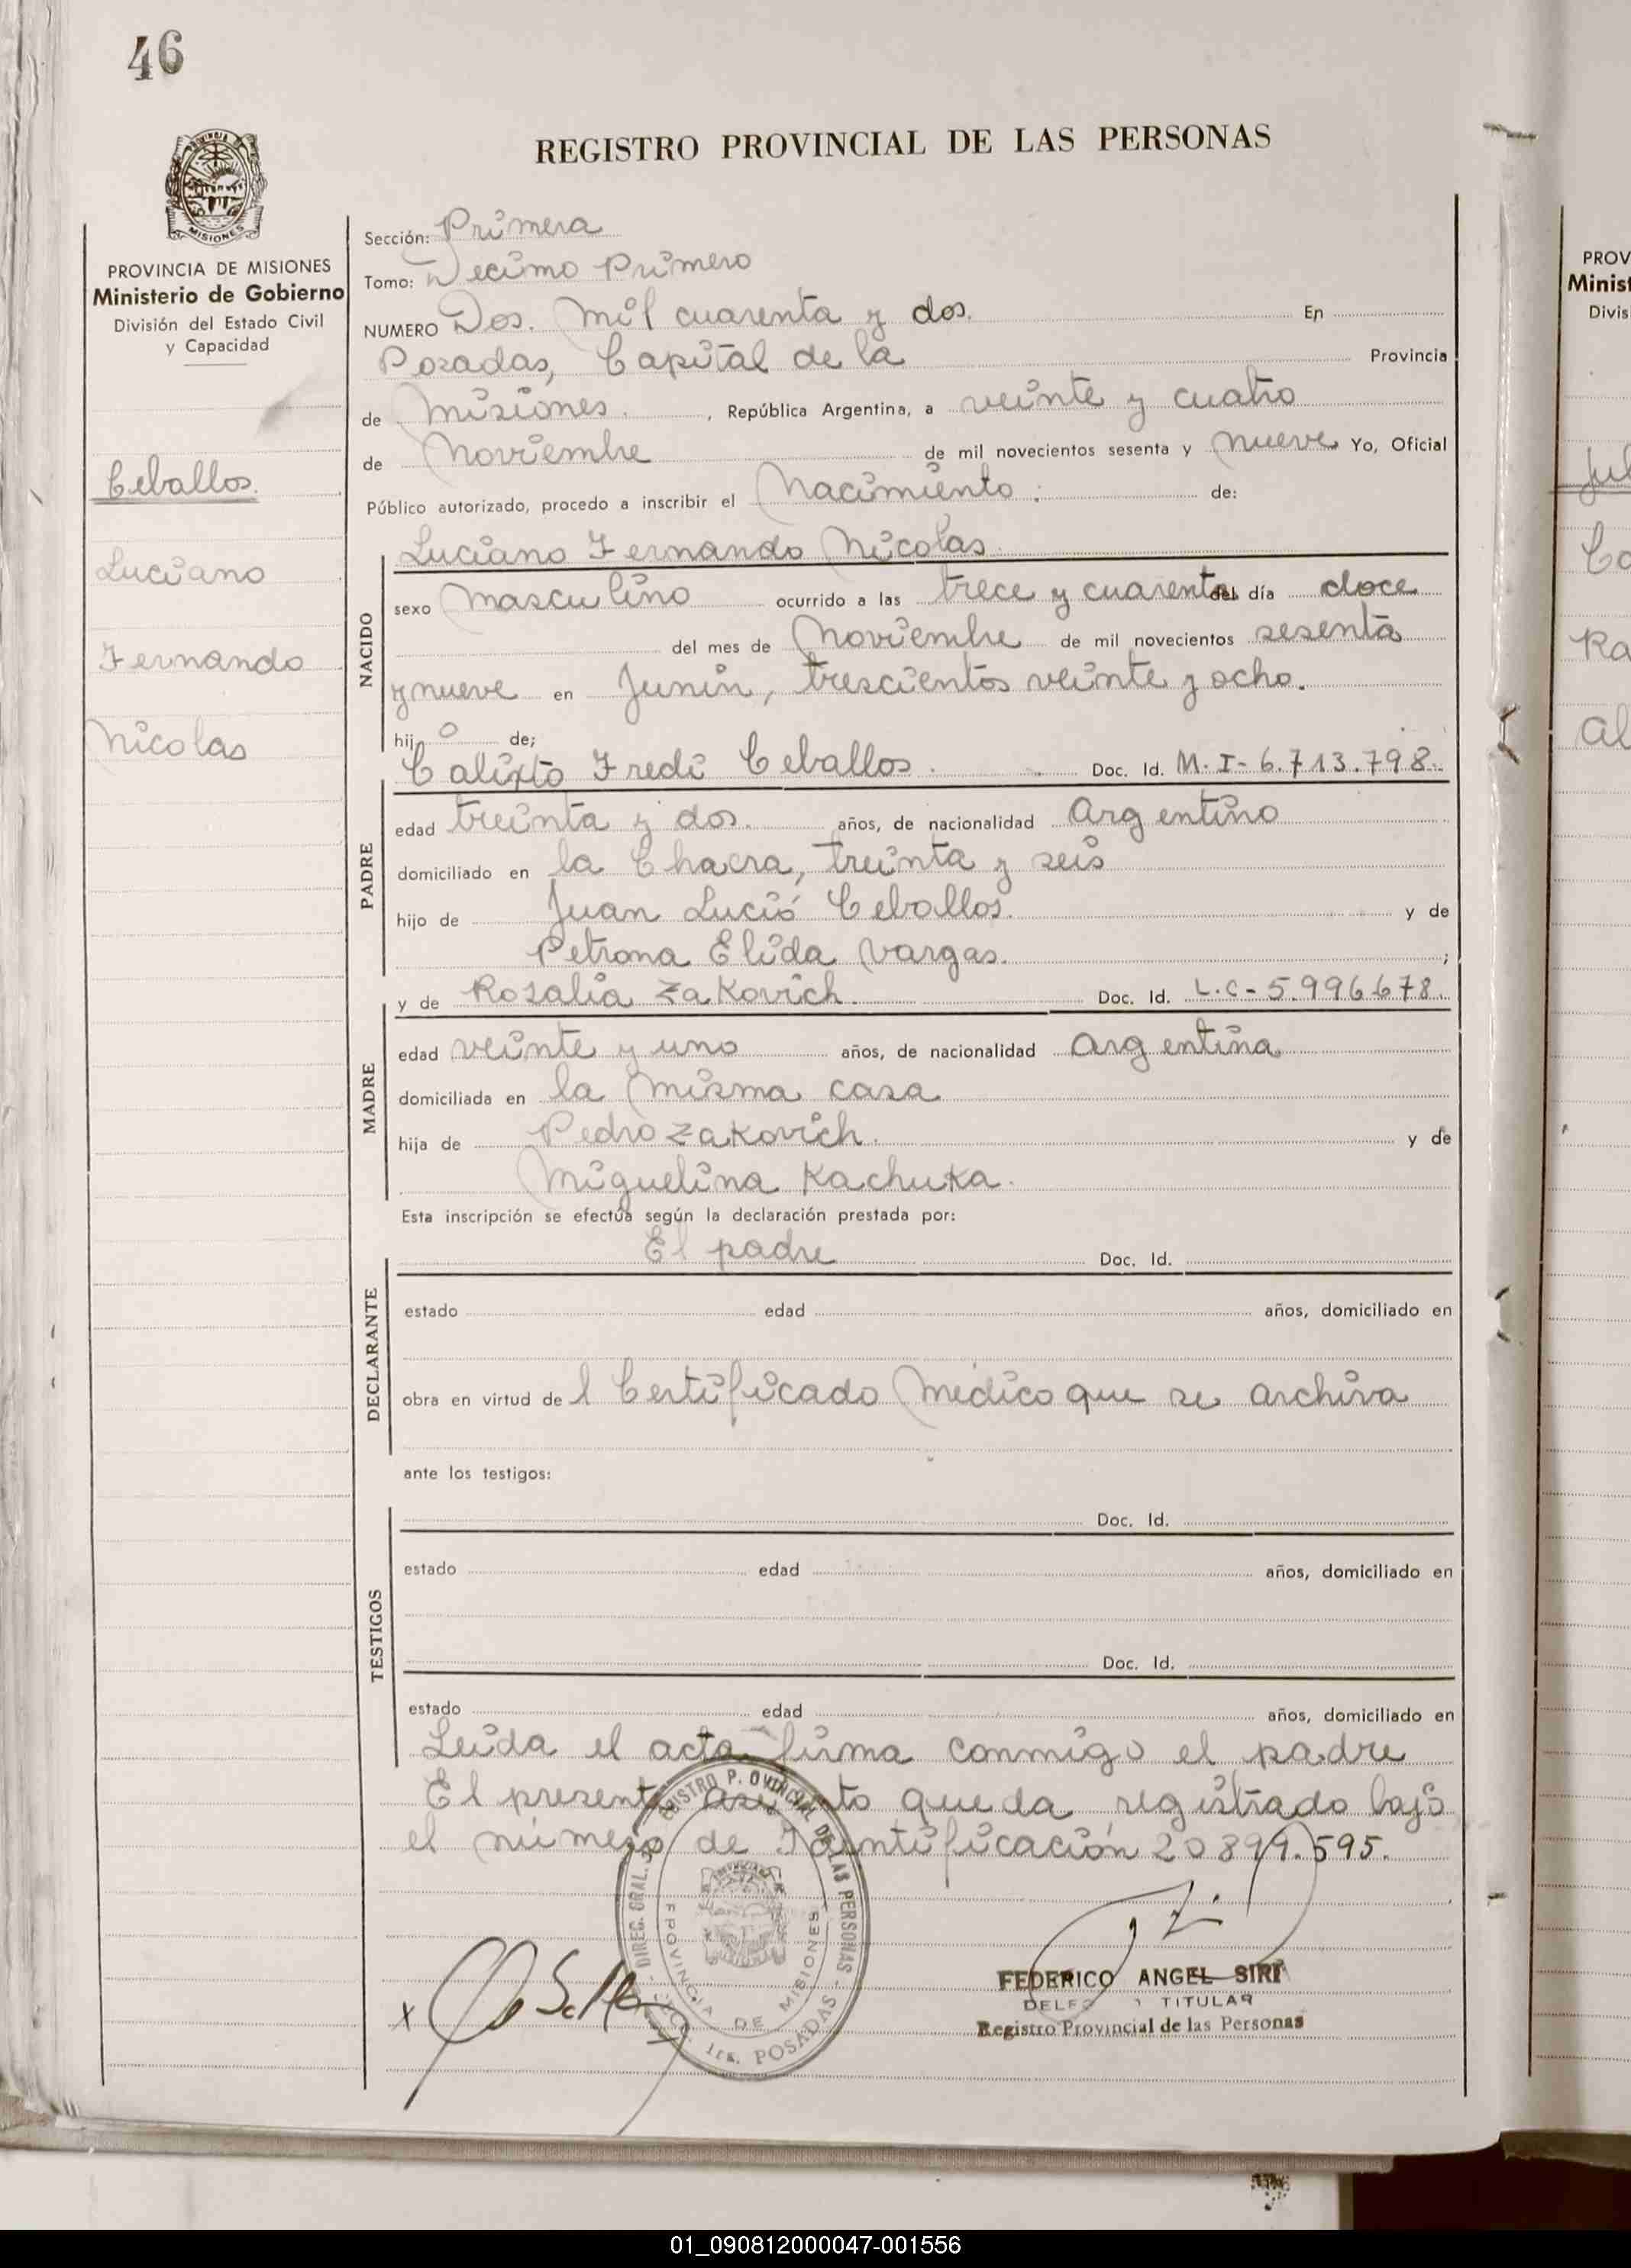 46
REGISTRO PROVINCIAL DE LAS PERSONAS
MISIONES
PROVINCIA DE MISIONES
Ministerio de Gobierno
División del Estado Civil
y Capacidad
Ceballos.
Luciano
Fernando
Nicolas
Sección: Primera
Tomo: Decimo Primero
NUMERO Dos. Mil cuarenta y dos. En
Posadas, Capital de la Provincia
de Misiones. , República Argentina, a veinte y cuatro
de Noviembre de mil novecientos sesenta y nueve Yo, Oficial
Público autorizado, procedo a inscribir el Nacimiento: de:
Luciano Fernando Nicolas
NACIDO
sexo Masculino ocurrido a las trece y cuarenta del día doce
del mes de Noviembre de mil novecientos sesenta
y nueve en Junin, trescientos veinte y ocho.
hij o de;
Calixto Fredi Ceballos. Doc. Id. M.I-6.713.798.
PADRE
edad treinta y dos. años, de nacionalidad Argentino
domiciliado en la Chacra, treinta y seis
hijo de Juan Lució Ceballos. y de
Petrona Elida Vargas. ;
y de Rosalia Zakovich. Doc. Id. L.C-5.996.678.
MADRE
edad veinte y uno años, de nacionalidad Argentina
domiciliada en la misma casa
hija de Pedro Zakovich. y de
Miguelina Kachuka.
Esta inscripción se efectúa según la declaración prestada por:
El padre Doc. Id.
DECLARANTE
estado edad años, domiciliado en
obra en virtud de l Certificado Médico que se archiva
ante los testigos:
Doc. Id.
TESTIGOS
estado edad años, domiciliado en
Doc. Id.
estado edad años, domiciliado en
Leida el acta firma conmigo el padre
El presente asiento queda registrado bajo
el número de Identificación 20.899.595.
DIREC. GRAL. REGISTRO P. OVINCIAL DE LAS PERSONAS - POSADAS
PROVINCIA DE MISIONES
x
FEDERICO ANGEL SIRI
TITULAR
Registro Provincial de las Personas
PROV
Minist
Divis
01_090812000047-001556